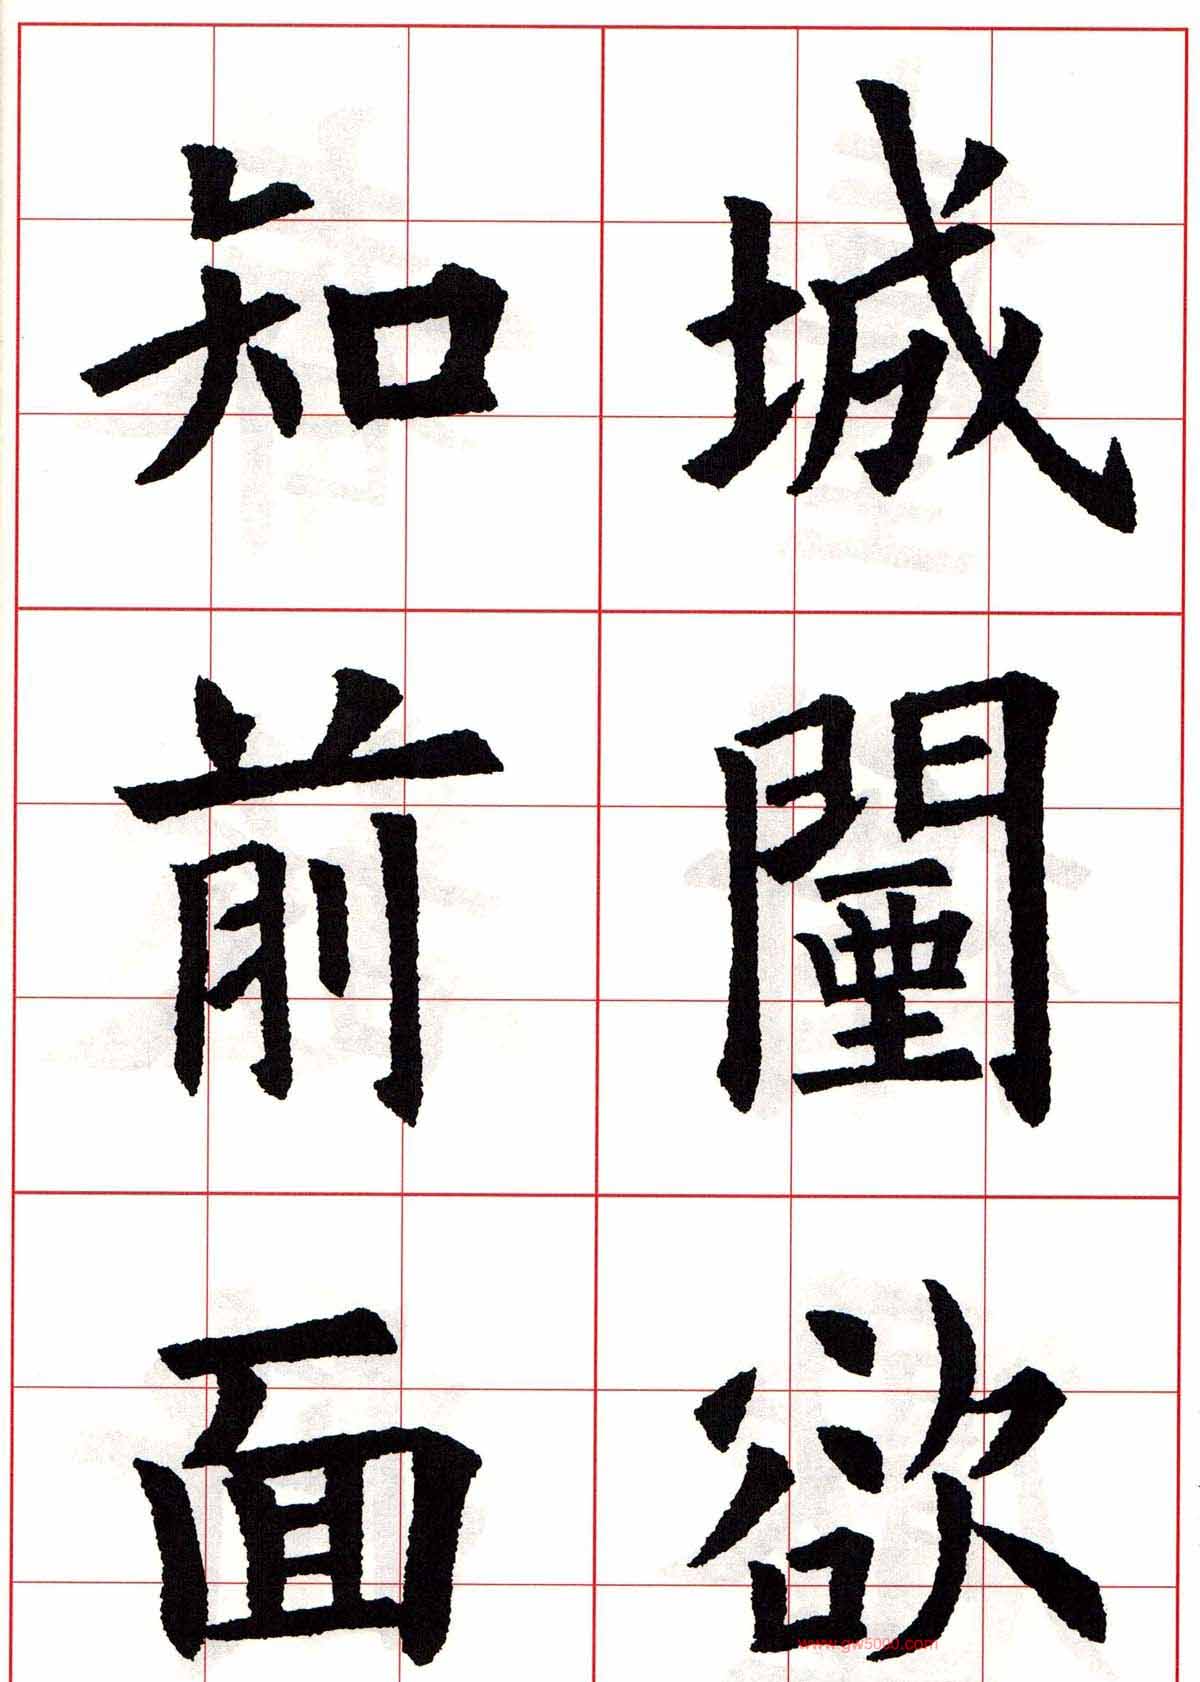 城闉欲
知前面
www.gw5000.com